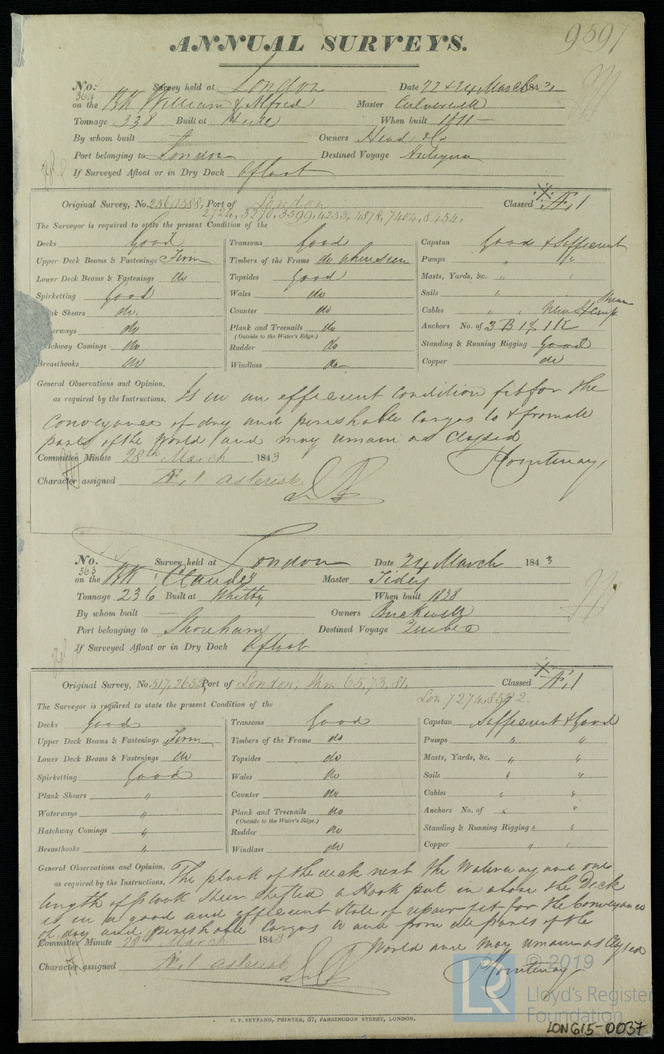 9597
ANNUAL SURVEYS.
No. 564 Survey held at London Date 22 & 24 March 1843
on the BK William & Alfred Master Culverwell
Tonnage 338 Built at When built
By whom built — Owners Head &Co
Port belonging to London Destined Voyage Antigua
If Surveyed Afloat or in Dry Dock Afloat
Original Survey, No. 256,1588, Port of London Classed A,1
2724, 5270, 5599, 4233, 4878, 7404, 8454,
The Surveyor is required to state the present Condition of the
Decks Good Transoms Good Capstan Good & Sufficient
Upper Deck Beams & Fastenings Firm Timbers of the Frame do where seen Pumps " "
Lower Deck Beams & Fastenings do Topsides Good Masts, Yards, &c. " "
Spirketting Good Wales do Sails " "
Plank Shears do. Counter do Cables " "
Waterways do Plank and Treenails do Anchors No. of 3 B 1 S 1 K
(Outside to the Water's Edge.)
Hatchway Comings do Rudder do Standing & Running Rigging Good
Breasthooks do Windlass do Copper do
General Observations and Opinion, Is in an efficient condition fit for the
as required by the Instructions.
conveyance of dry and perishable cargos to & from all
parts of the world and may remain as Classed
Committee Minute 28th March 1843 Courtenay
Character assigned A,1 asterisk
No. 563 Survey held at London Date 24 March 1843
on the BK Claudes Master Tidey
Tonnage 236 Built at Whitby When built 1838
By whom built — Owners Buckwell
Port belonging to Shoreham Destined Voyage Quebec
If Surveyed Afloat or in Dry Dock Afloat
Original Survey, No. 517, 2653, Port of London, Shm 65, 73, 81, Classed A,1
Lon 7274, 8582
The Surveyor is required to state the present Condition of the
Decks Good Transoms Good Capstan Sufficient & Good
Upper Deck Beams & Fastenings Firm Timbers of the Frame do Pumps " "
Lower Deck Beams & Fastenings do Topsides do Masts, Yards, &c. " "
Spirketting Good Wales do Sails " "
Plank Shears " Counter do Cables " "
Waterways " Plank and Treenails do Anchors No. of " "
(Outside to the Water's Edge.)
Hatchway Comings " Rudder do Standing & Running Rigging " "
Breasthooks " Windlass do Copper " "
General Observations and Opinion, The plank of the deck next the Waterway and one
as required by the Instructions.
length of plank sheer shifted a Hook put in above the Deck
is in a good and efficient state of repair fit for the conveyance
of dry and perishable cargos to and from all parts of the
Committee Minute 28th March 1843 World and may remain as Classed
Character assigned A,1 asterisk Courtenay
C. F. SEYFANG, PRINTER, 57, FARRINGDON STREET, LONDON.
© 2019
LR Lloyd's Register
Foundation
LON615-0037